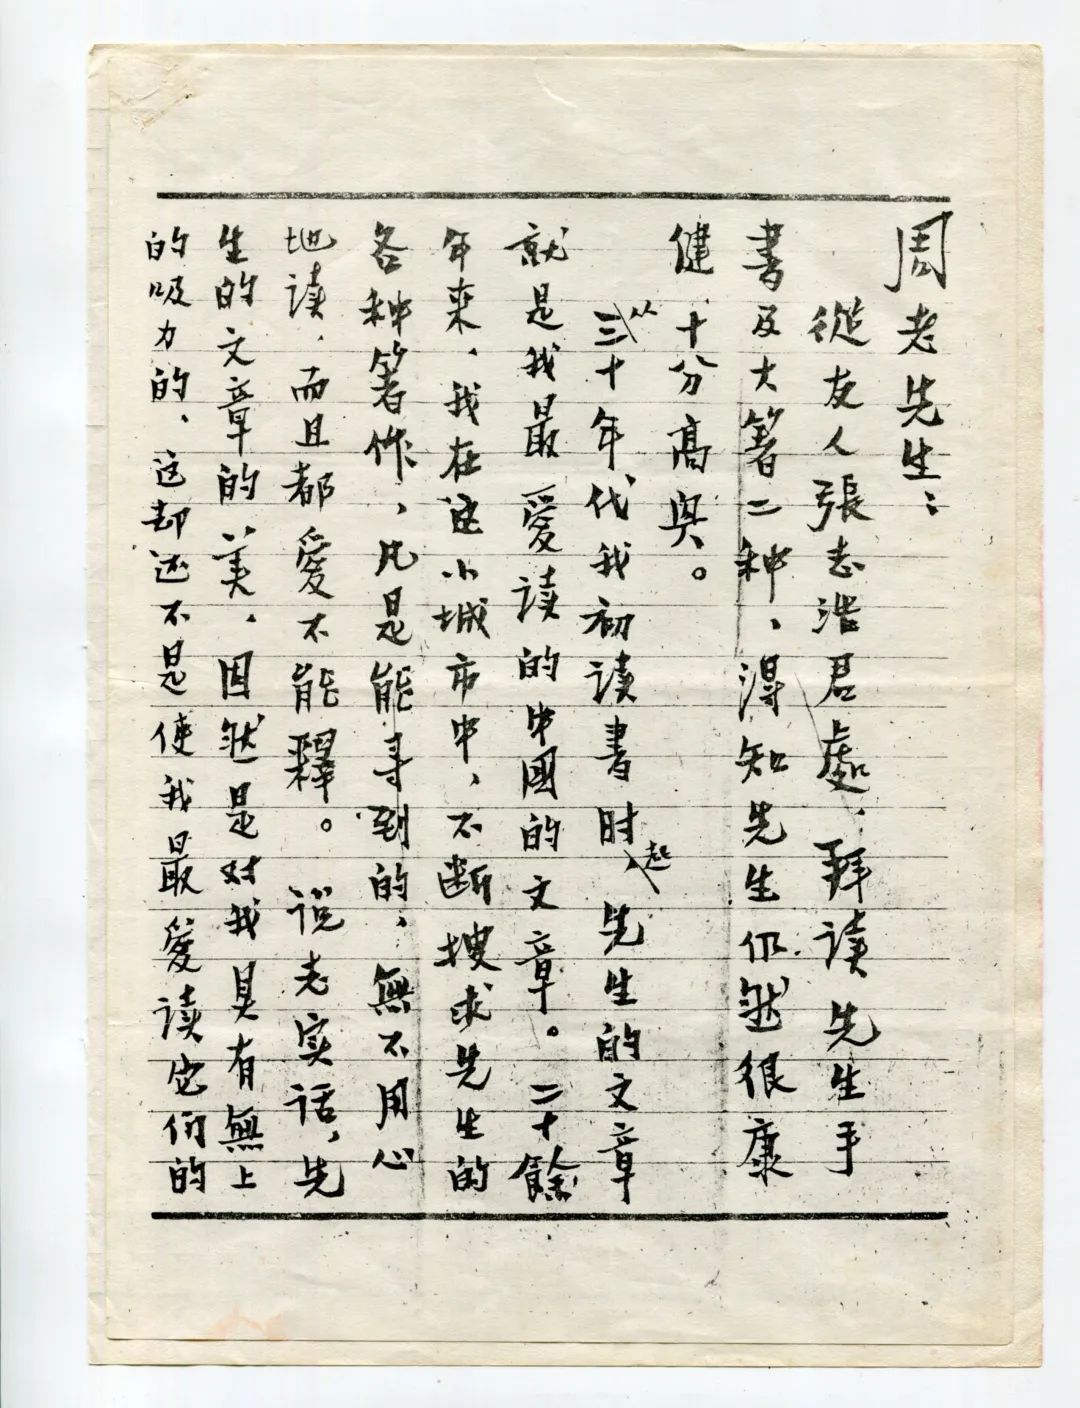 周老先生：
從友人張志浩君處，拜读先生手
書及大箸二种，得知先生仍然很康
健，十分高兴。
从三十年代我初读书时起，先生的文章
就是我最爱读的中國的文章。二十餘
年来，我在这小城市中，不断搜求先生的
各种箸作，凡是能寻到的，無不用心
地读，而且都爱不能釋。说老实话，先
生的文章的美，固然是对我具有無上
的吸力的，这却还不是使我最爱读它们的